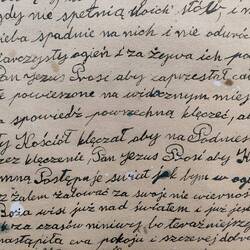 gdy nie spełnią moich słów, i n
ieba spadnie na nich i nie odwró
iarczysty ogień i zażywa ich po
Pan Jezus Prosi aby zaprzestał ca
powieszone na widocznym miejs
spowiedź powszechną klęczeć, a
ły Kościół klęczał, aby na Podnies
rzez klęczenie, Pan Jezus Prosi aby K
mną Postępuje świat jak bym w og
żalem żałować za swoje nie wiernoś
Boża wisi już nad światem i już je
rza czasów minionych bo teraźniejsz
nastąpiła era pokoju i szczerej